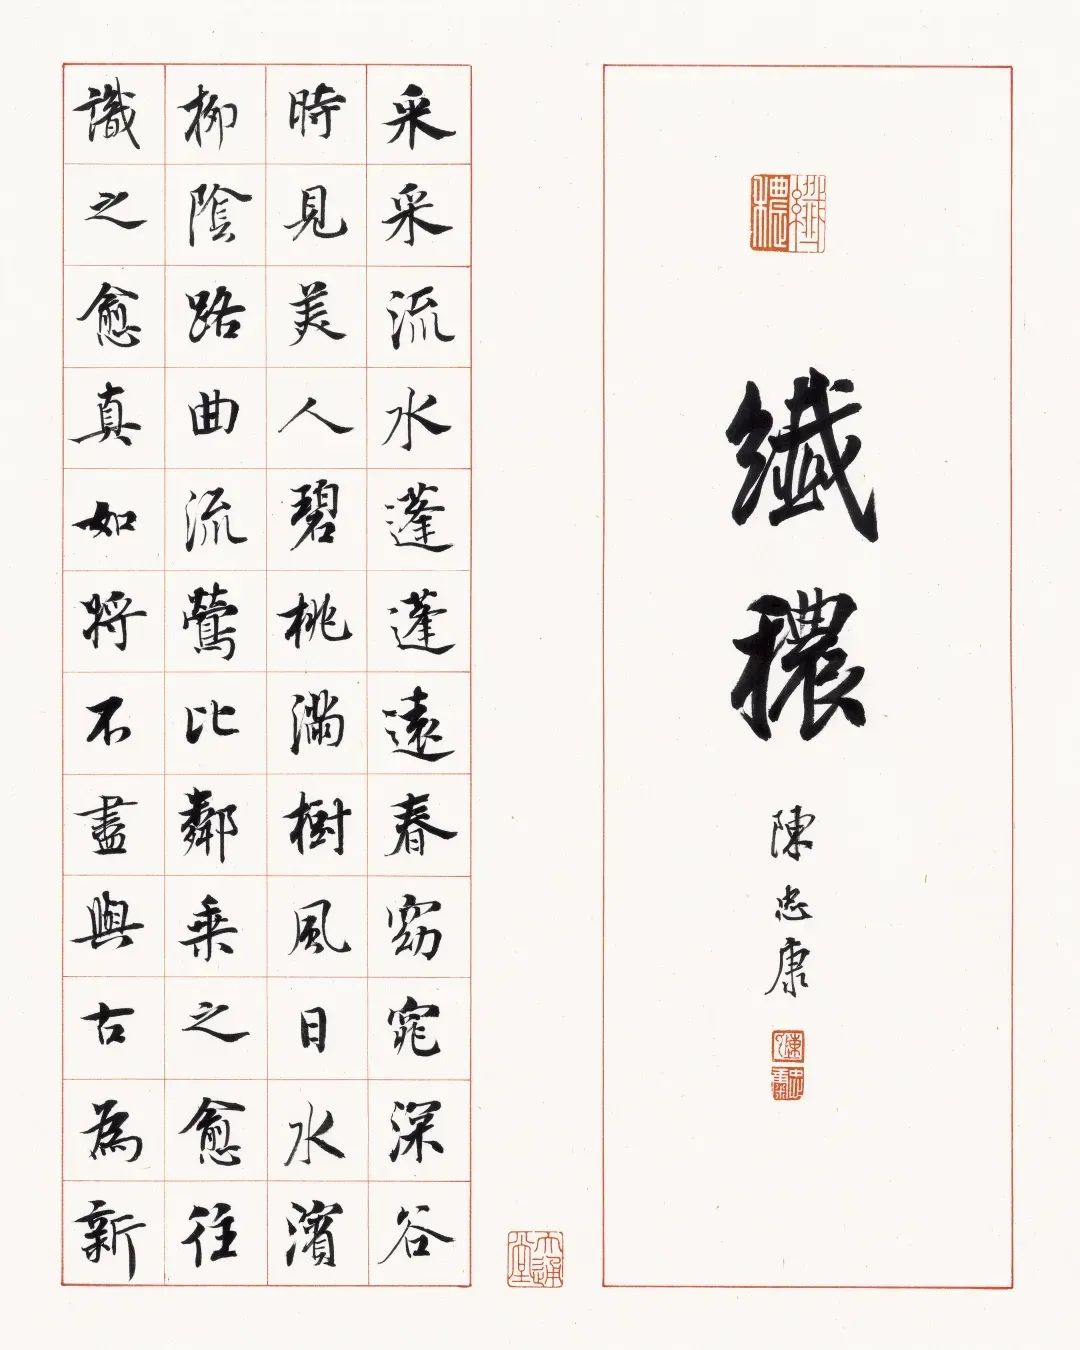 纖穠
纖穠
陳忠康
忠康
采采流水蓬蓬遠春窈窕深谷
時見美人碧桃滿樹風日水濱
柳陰路曲流鶯比鄰乘之愈往
識之愈真如將不盡與古為新